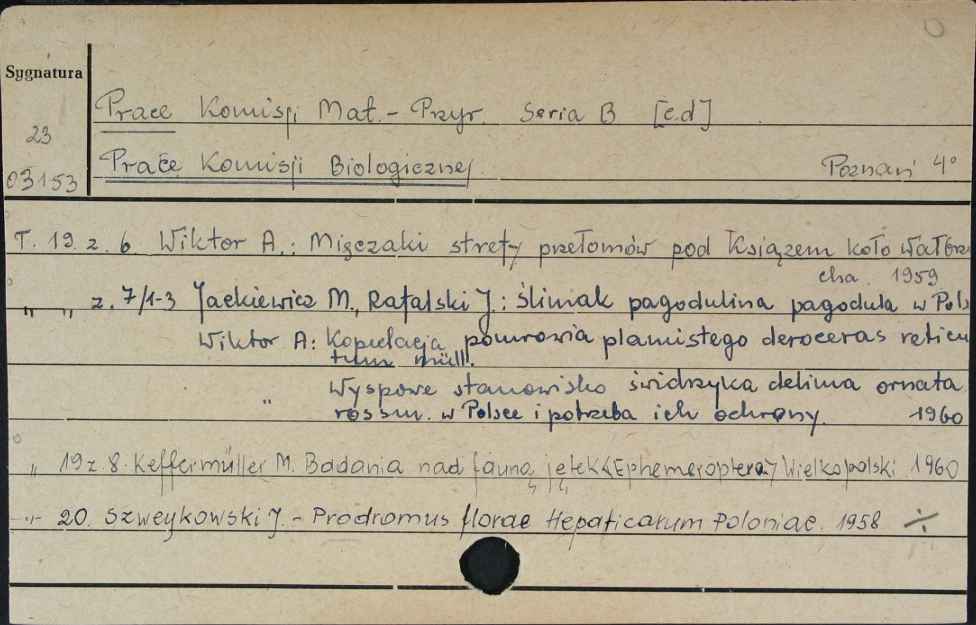 Sygnatura
Prace Komisji Mat.-Przyr. Seria B [c.d]
23
03153
Prace Komisji Biologicznej Poznań 4°
T. 19. z. 6. Wiktor A.: Mięczaki strefy przełomów pod Książem koło Wałbrzy
cha. 1959
" " z. 7/1-3 Jackiewicz M., Rafalski J.: ślimak pagodulina pagodula w Pols
Wiktor A: Kopulacja pomrowia plamistego deroceras reticu
tum müll.
" Wyspowe stanowisko świdrzyka delima ornata
rossm. w Polsce i potrzeba ich ochrony. 1960
" 19 z 8. Keffermüller M. Badania nad fauną jętek (Ephemeroptera) Wielkopolski 1960
-"- 20. Szweykowski J. - Prodromus florae Hepaticarum Poloniae. 1958 ÷